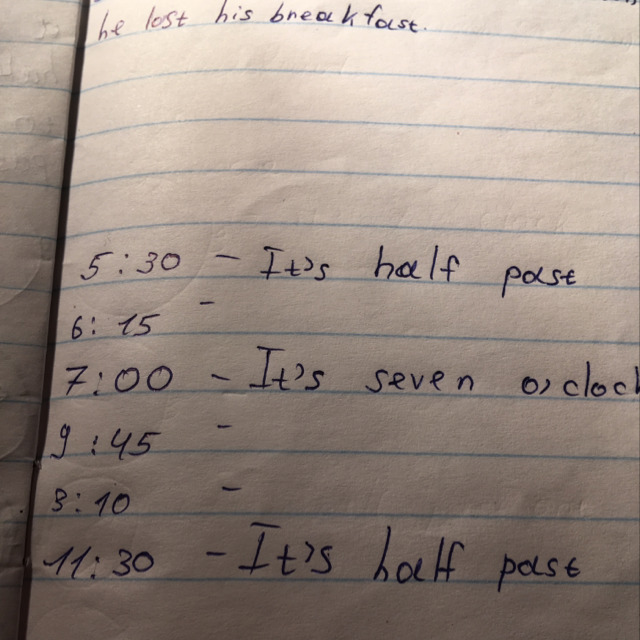 he lost his breakfast.
5:30 - It's half past
6:15 -
7:00 - It's seven o'clock
9:45 -
3:10 -
11:30 - It's half past